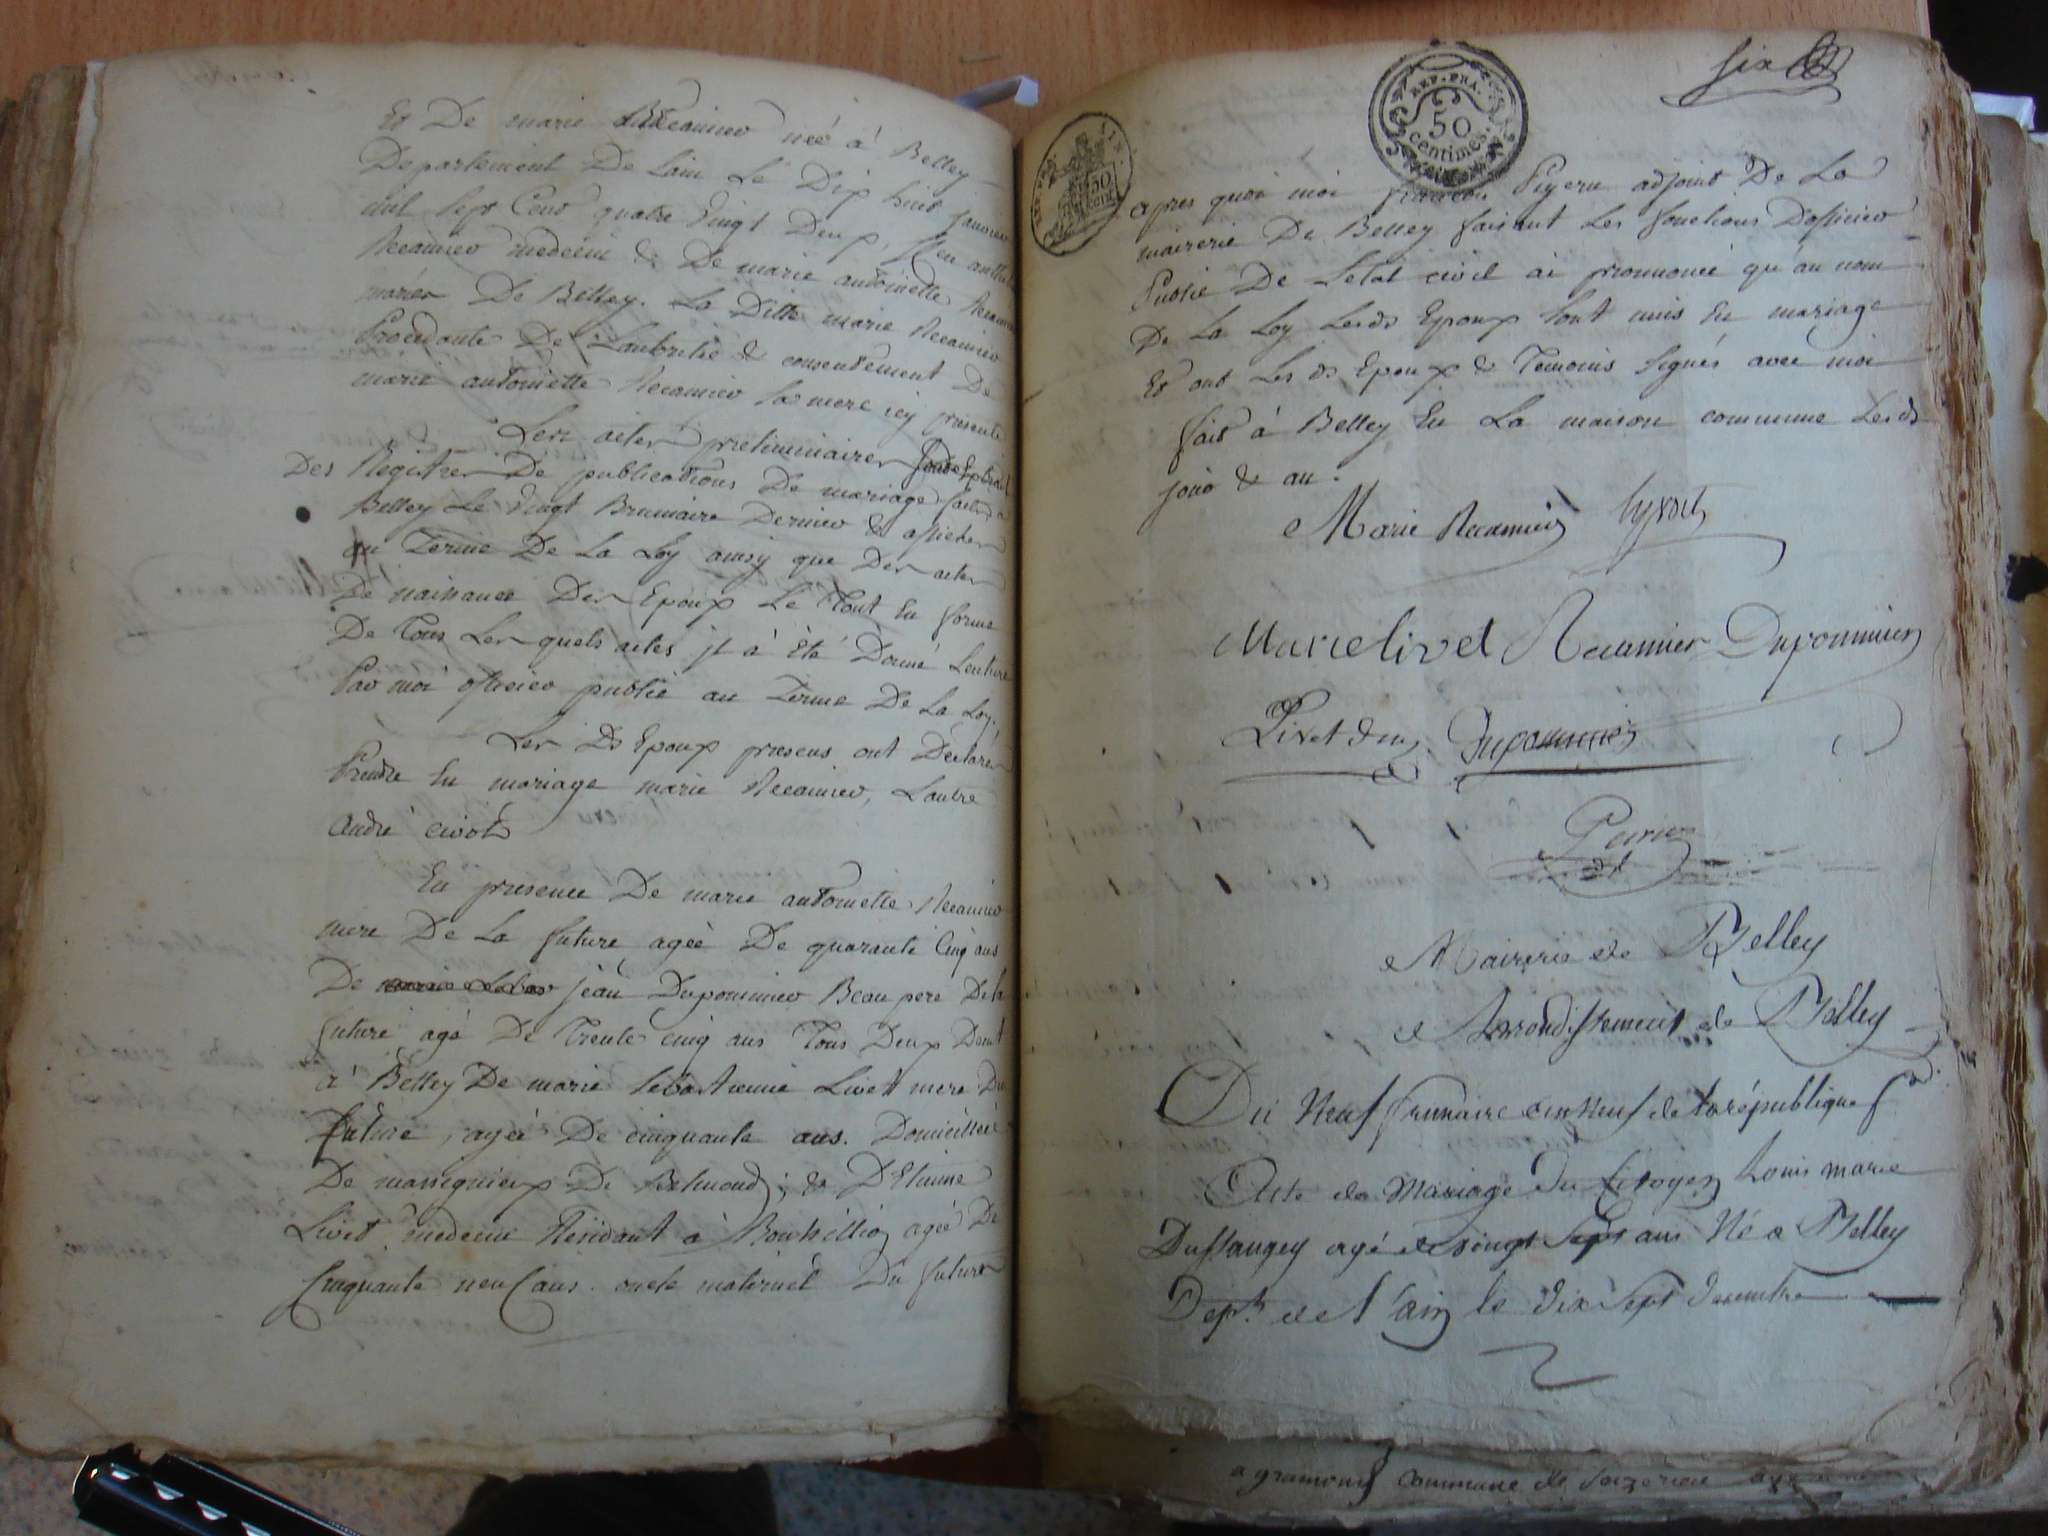 Et De marie Recamier née à Belley
Departement De Lain Le Dix huit janvier
mil sept Cent quatre vingt Deux, feu anthelme
Recamier medecin & De marie antoinette Recamier
mariés De Belley. La Ditte marie Recamier
Procedante De Lautorité & consentement De
marie antoinette Recamier sa mere icy présente
Les actes préliminaires sont Extrait
Des Registres De publications De mariage faites a
Belley Le vingt Brumaire Dernier & affichés
au Terme De La Loy ainsy que Des actes
De naissance Des Epoux Le Tout En forme
De Tous Les quels actes jl à èté Donné Lecture
Par moi officier public au Terme De La Loy.
Les Ds Epoux présens ont Déclarés
Prendre En mariage marie Recamier, Lautre
andré civot
En presence De marie antoinette Recamier
mere De La future agée De quarante Cinq ans
De jean Dupommier Beau pere De la
future agé De Trente cinq ans Tous Deux Domt
à Belley De marie sebastienne Livet mere Du
future, agée De cinquante ans. Domiciliée
De massignieux De Belmond; & D'Etienne
Livet medecin Résidant à agée De
Cinquante neuf ans. oncle maternel Du futur
six
REP. FRA.
50
centimes.
50
CENT
apres quoi moi françois adjoint De La
mairerie De Belley faisant Les fonctions Dofficier
Public De Letat civil ai prononcé qu'au nom
De La Loy Lesds Epoux sont unis En mariage
Et ont Les ds Epoux & Temoins signés avec moi
fait à Belley En La maison commune Lesds
jour & an.
Marie Recamier
Marie livet Recamier Dupommier
Livet Dupommier
Mairerie de Belley
Arrondissement de Belley
Du Neuf frimaire an neuf de la république f
Acte de Mariage du Citoyen Louis marie
Dussaugey agé de vingt sept ans Né a Belley
Dept. de l'ain le dix sept decembre
a commune de